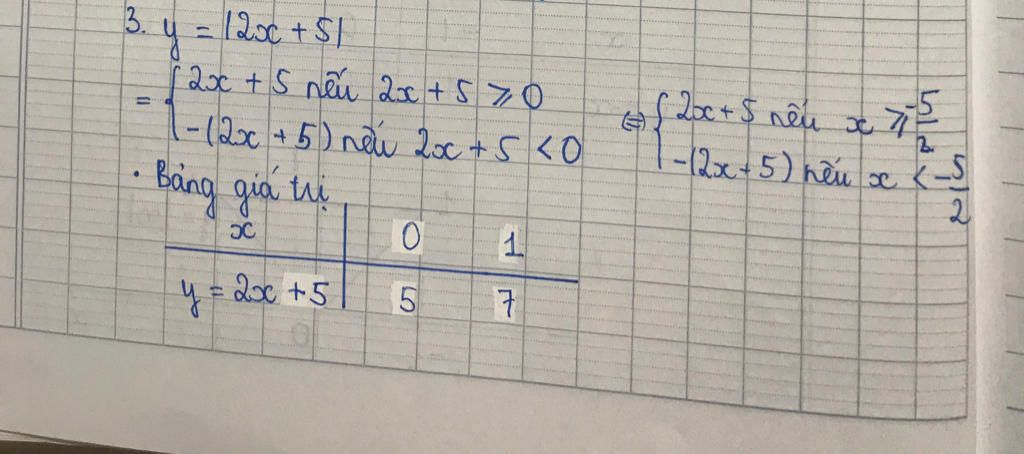 3. y = |2x + 5|
= { 2x + 5 nếu 2x + 5 ⩾ 0
-(2x + 5) nếu 2x + 5 < 0
⇔ { 2x + 5 nếu x ⩾ -5/2
-(2x + 5) nếu x < -5/2
• Bảng giá trị
x 0 1
y = 2x + 5 5 7